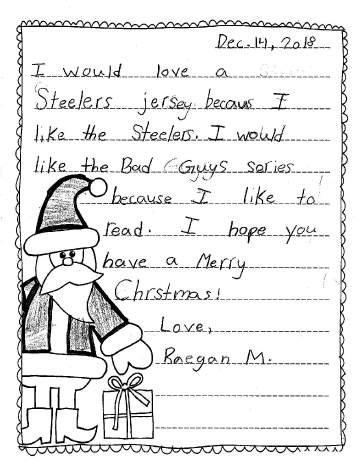 Dec. 14, 2018
I would love a
Steelers jersey becaus I
like the Steelers. I would
like the Bad Guys series
because I like to
read. I hope you
have a Merry
Chrstmas!
Love,
Raegan M.